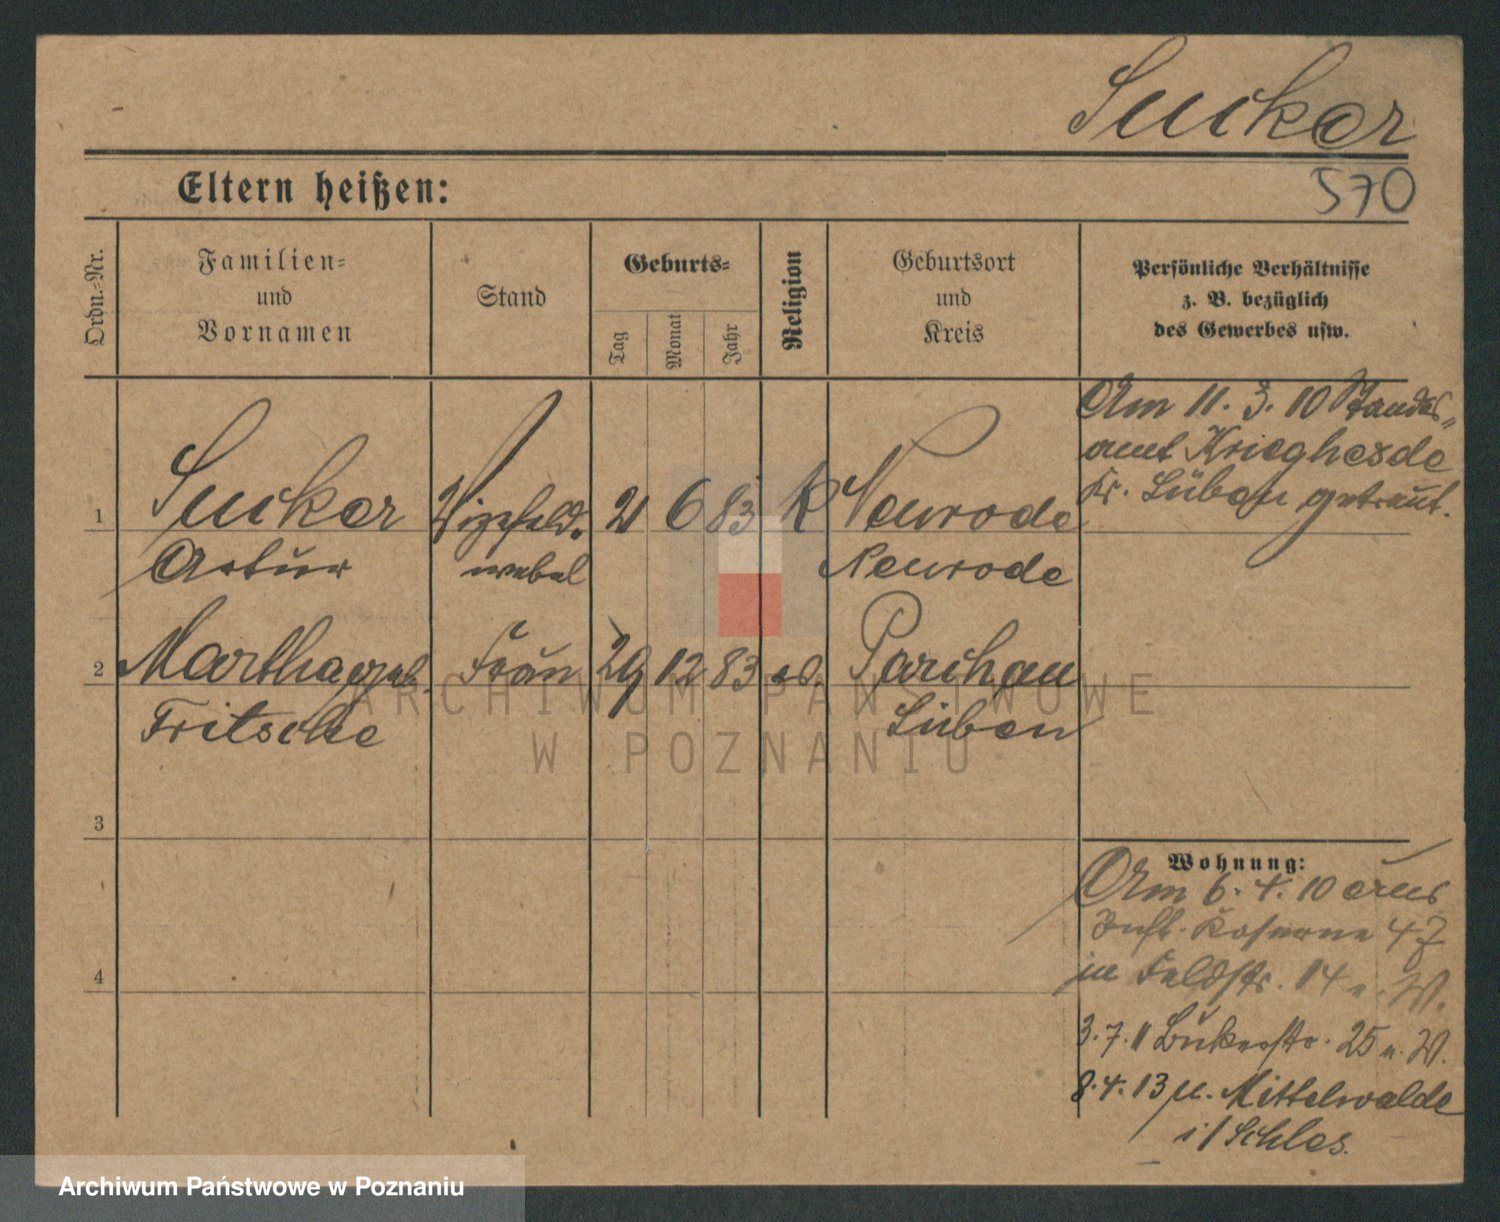 Sucker
Eltern heißen:
570
Ordn.-Nr.
Familien-
und
Vornamen
Stand
Geburts-
Tag
Monat
Jahr
Religion
Geburtsort
und
Kreis
Persönliche Verhältnisse
z. B. bezüglich
des Gewerbes usw.
1
Sucker
Artur
Vizefeld-
webel
21 6 83
K
Neurode
Neurode
Am 11. 3. 10 Standes-
amt Krieghesde
Kr. Lüben getraut.
2
Martha geb.
Fritsche
Frau
29 12 83
ev.
Parchau
Lüben
3
4
Wohnung:
Am 6. 4. 10 aus
Inft. Kaserne 47
in Feldstr. 14 n. W.
3. 7. 11 Bukerstr. 25 n. W.
8. 4. 13 n. Mittelwalde
i/Schles.
ARCHIWUM PAŃSTWOWE
W POZNANIU
Archiwum Państwowe w Poznaniu